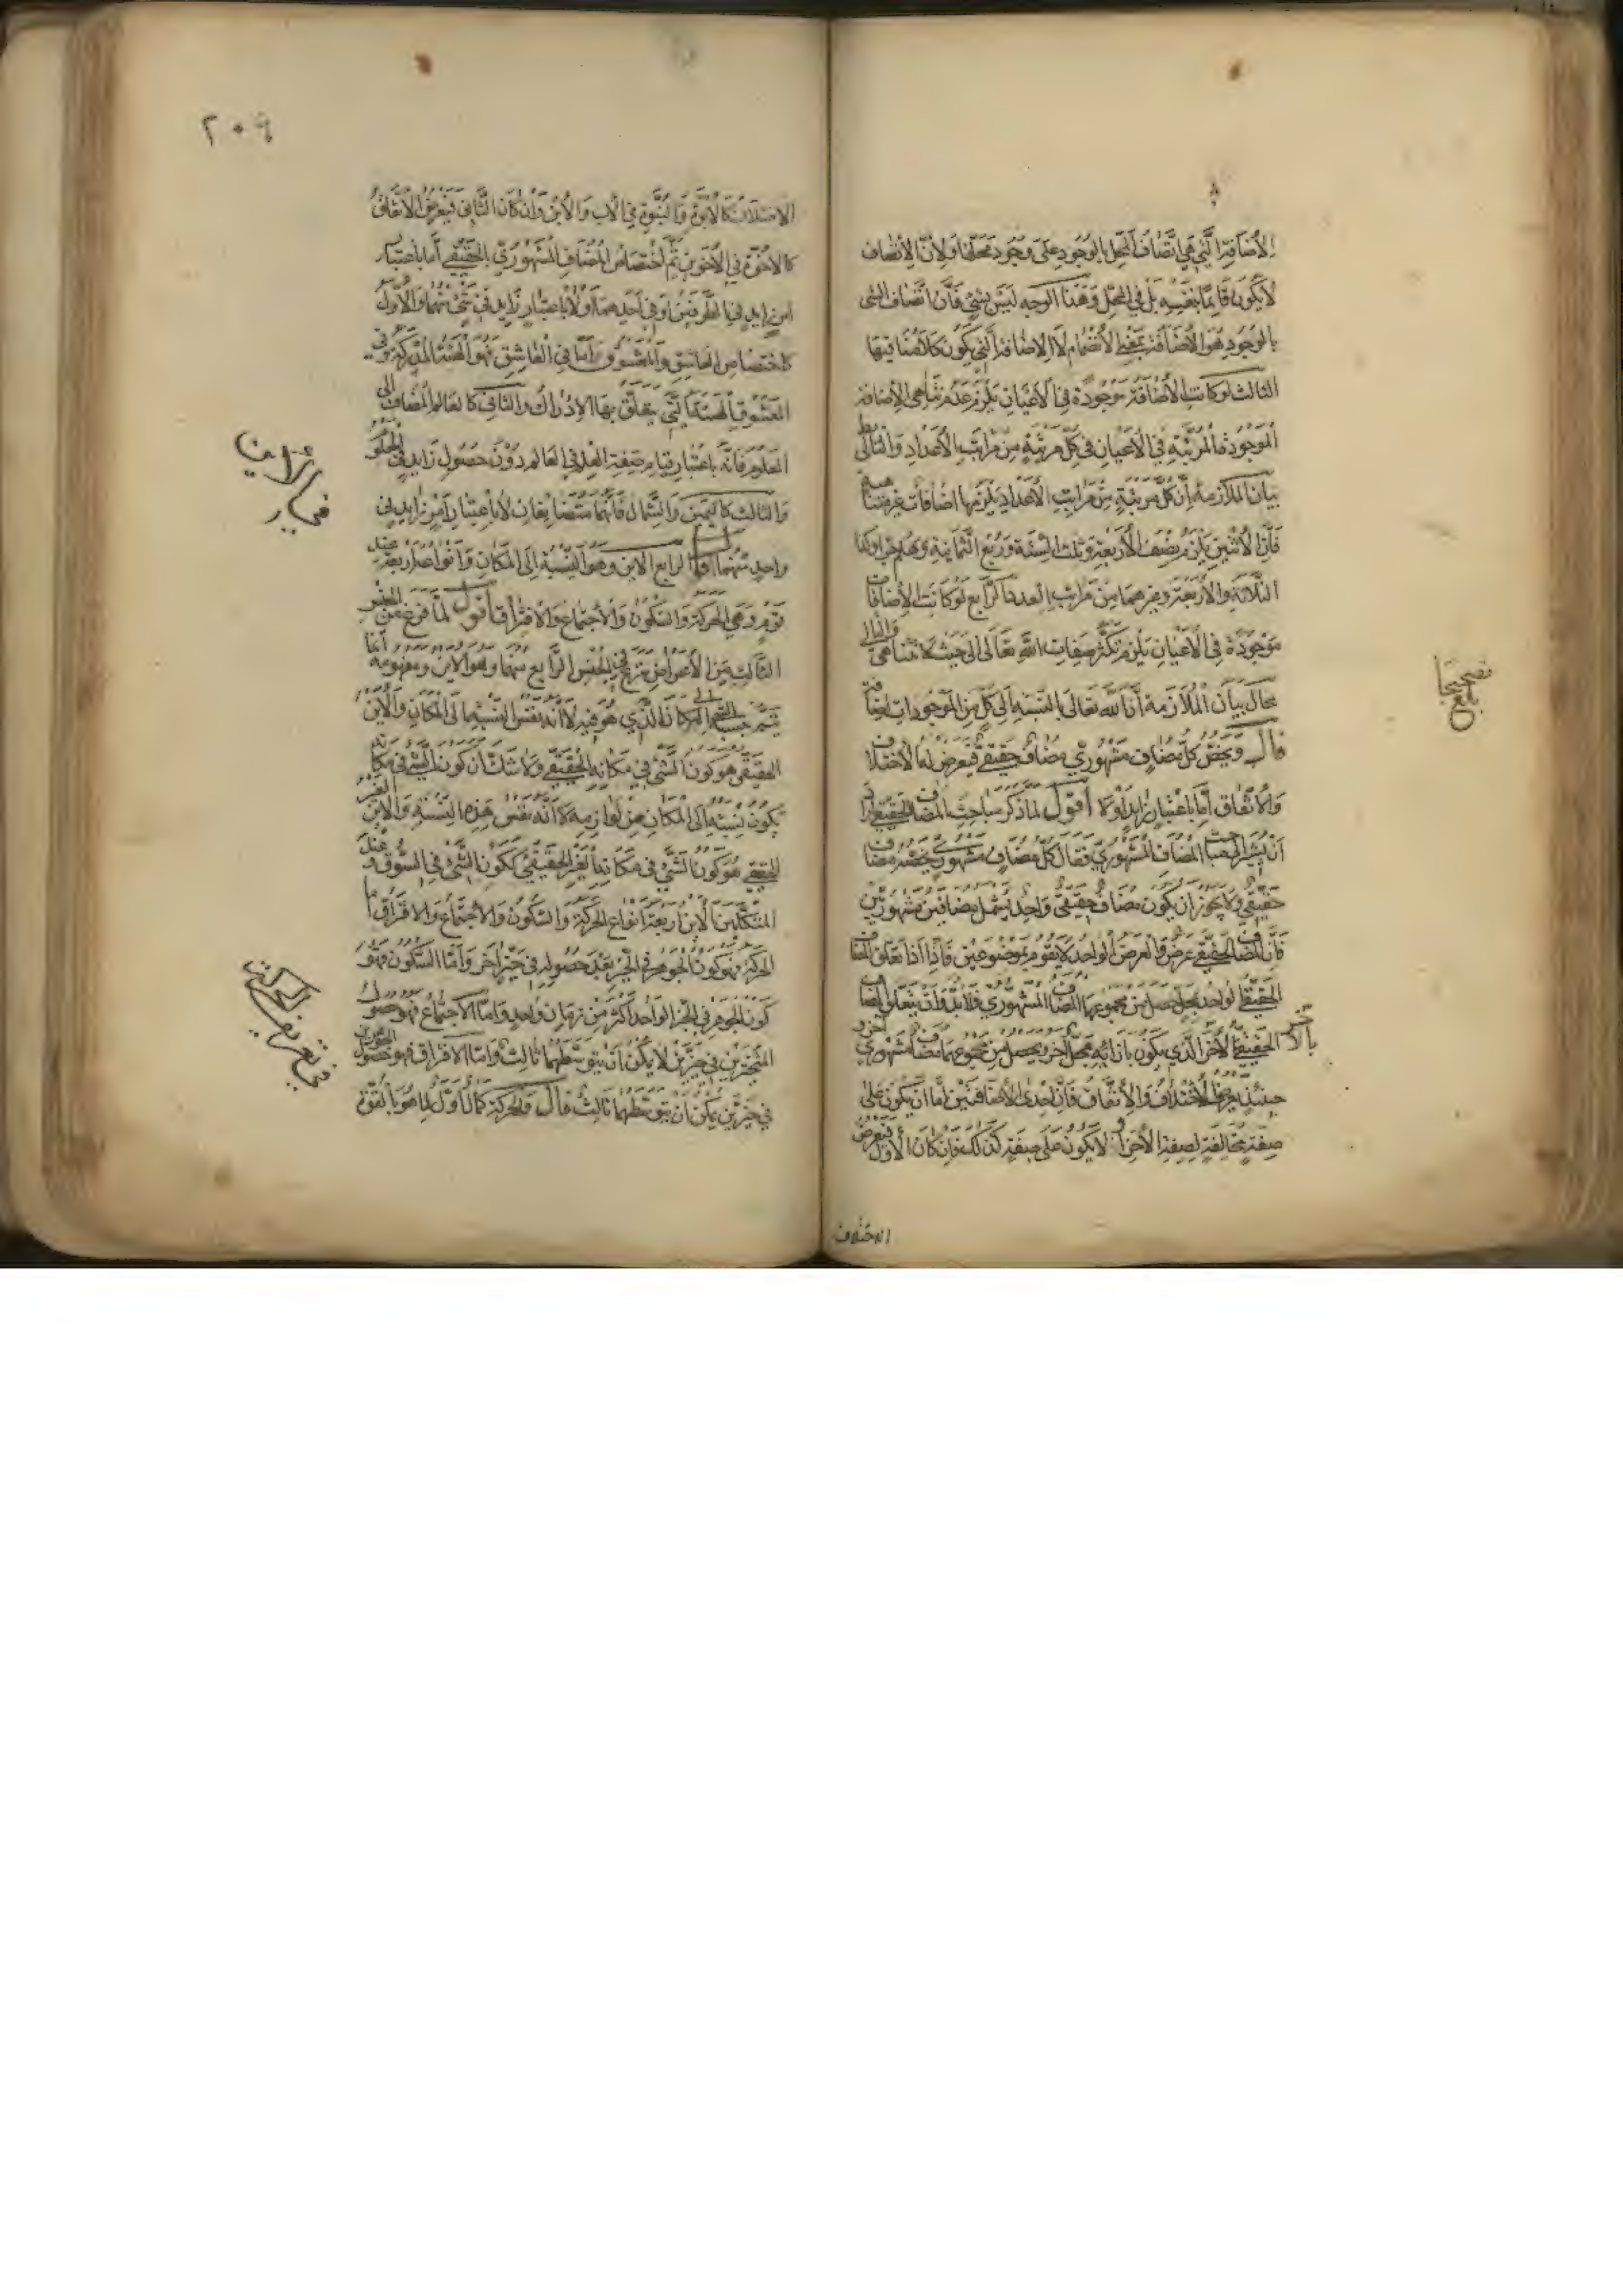 الاضافة التي هي اتصاف المحل بالوجود على وجود محلها ولان الاتصاف
لا يكون قايما بنفسه بل في المحل وهذا الوجه ليس بشئ فان اتصاف الشئ
بالوجود هو الاضافة بمعنى الانضمام لا الاضافة التي يكون كلامنا فيها
الثالث لو كانت الاضافة موجودة في الاعيان يلزم عدم تناهي الاضافة
الموجودة المرتبة في الاعيان في كل مرتبة من مراتب الاعداد والتالى بط
بيان الملازمة ان كل مرتبة من مراتب الاعداد يلزمها اضافات غير متناهية
فان الاثنين يلزم نصف الاربعة وثلث الستة وربع الثمانية وهلم جرا وكذا
الثلاثة والاربعة وغيرهما من مراتب العدد الرابع لو كانت الاضافات
موجودة في الاعيان يلزم تكثر صفات الله تعالى الى حيث لا تتناهى والتالى
محال بيان الملازمة ان الله تعالى بالنسبة الى كل من الموجودات اضافة
قال ويخص كل مضاف مشهوري مضاف حقيقي فيعرض له الاختلاف
والاتفاق اما باعتبار زايد او لا اقول لما ذكر مباحث المضاف الحقيقي اراد
ان يشير الى مباحث المضاف المشهوري فقال كل مضاف مشهوري يخصه مضاف
حقيقي ولا يجوز ان يكون مضاف حقيقي واحد يشمل مضافين مشهوريين
فان المضاف الحقيقي عرض والعرض الواحد لا يقوم بموضوعين فاذا تعلق المضاف
الحقيقي الواحد بمحل حصل من مجموعهما المضاف المشهوري فلا بد وان يتعلق المضاف
الحقيقي الاخر الذي يكون بازائه بمحل آخر ويحصل من مجموعهما مضاف مشهوري آخر و
حينئذ يعرض الاختلاف والاتفاق فان احدى الاضافتين اما ان يكون على
صفة مخالفة لصفة الاخرى او لا يكون على صفة كذلك فان كان الاول فيعرض
الاختلاف
بلغ
تصحيحا
٢٠٩
الاختلاف كالابوة والبنوة في الاب والابن وان كان الثاني فيعرض الاتفاق
كالاخوة في الاخوين ثم اختصاص المضاف المشهوري بالحقيقي اما باعتبار
امر زايد في الطرفين او في احدهما او لا باعتبار زايد في شئ منهما والاول
كاختصاص العاشق والمعشوق اما في العاشق فهو الهيئة المدركة وفي
المعشوق الهيئة التي يتعلق بها الادراك والثاني كالعالم المضاف الى
المعلوم فانه باعتبار قيام صفة العلم في العالم دون حصول زايد في المعلوم
والثالث كاليمين والشمال فانهما متضايفان لا باعتبار امر زايد في
واحد منهما قال الرابع الاين وهو النسبة الى المكان وانواعه اربعة عند
قوم وهي الحركة والسكون والاجتماع والافتراق اقول لما فرغ عن الجنس
الثالث من الاعراض شرع في الجنس الرابع منها وهو الاين ومفهومه انما
يتم بنسبة الشئ الى المكان الذي هو فيه لا انه نفس النسبة الى المكان والاين
الحقيقي هو كون الشئ في مكانه الحقيقي ولا شك ان كون الشئ في مكانه
يكون نسبته الى المكان من لوازمه لا انه نفس هذه النسبة والاين الغير
الحقيقي هو كون الشئ في مكانه الغير الحقيقي ككون الشئ في السوق وعند
المتكلمين الاين اربعة انواع الحركة والسكون والاجتماع والافتراق اما
الحركة فهو كون الجوهر في الحيز بعد حصوله في حيز آخر واما السكون فهو
كون الجوهر في الحيز الواحد اكثر من زمان واحد واما الاجتماع فهو حصول
المتحيزين في حيزين لا يمكن ان يتوسطهما ثالث واما الافتراق فهو حصول الجوهرين
في حيزين يمكن ان يتوسطهما ثالث قال والحركة كمال اول لما هو بالقوة
في تعريف الحركة